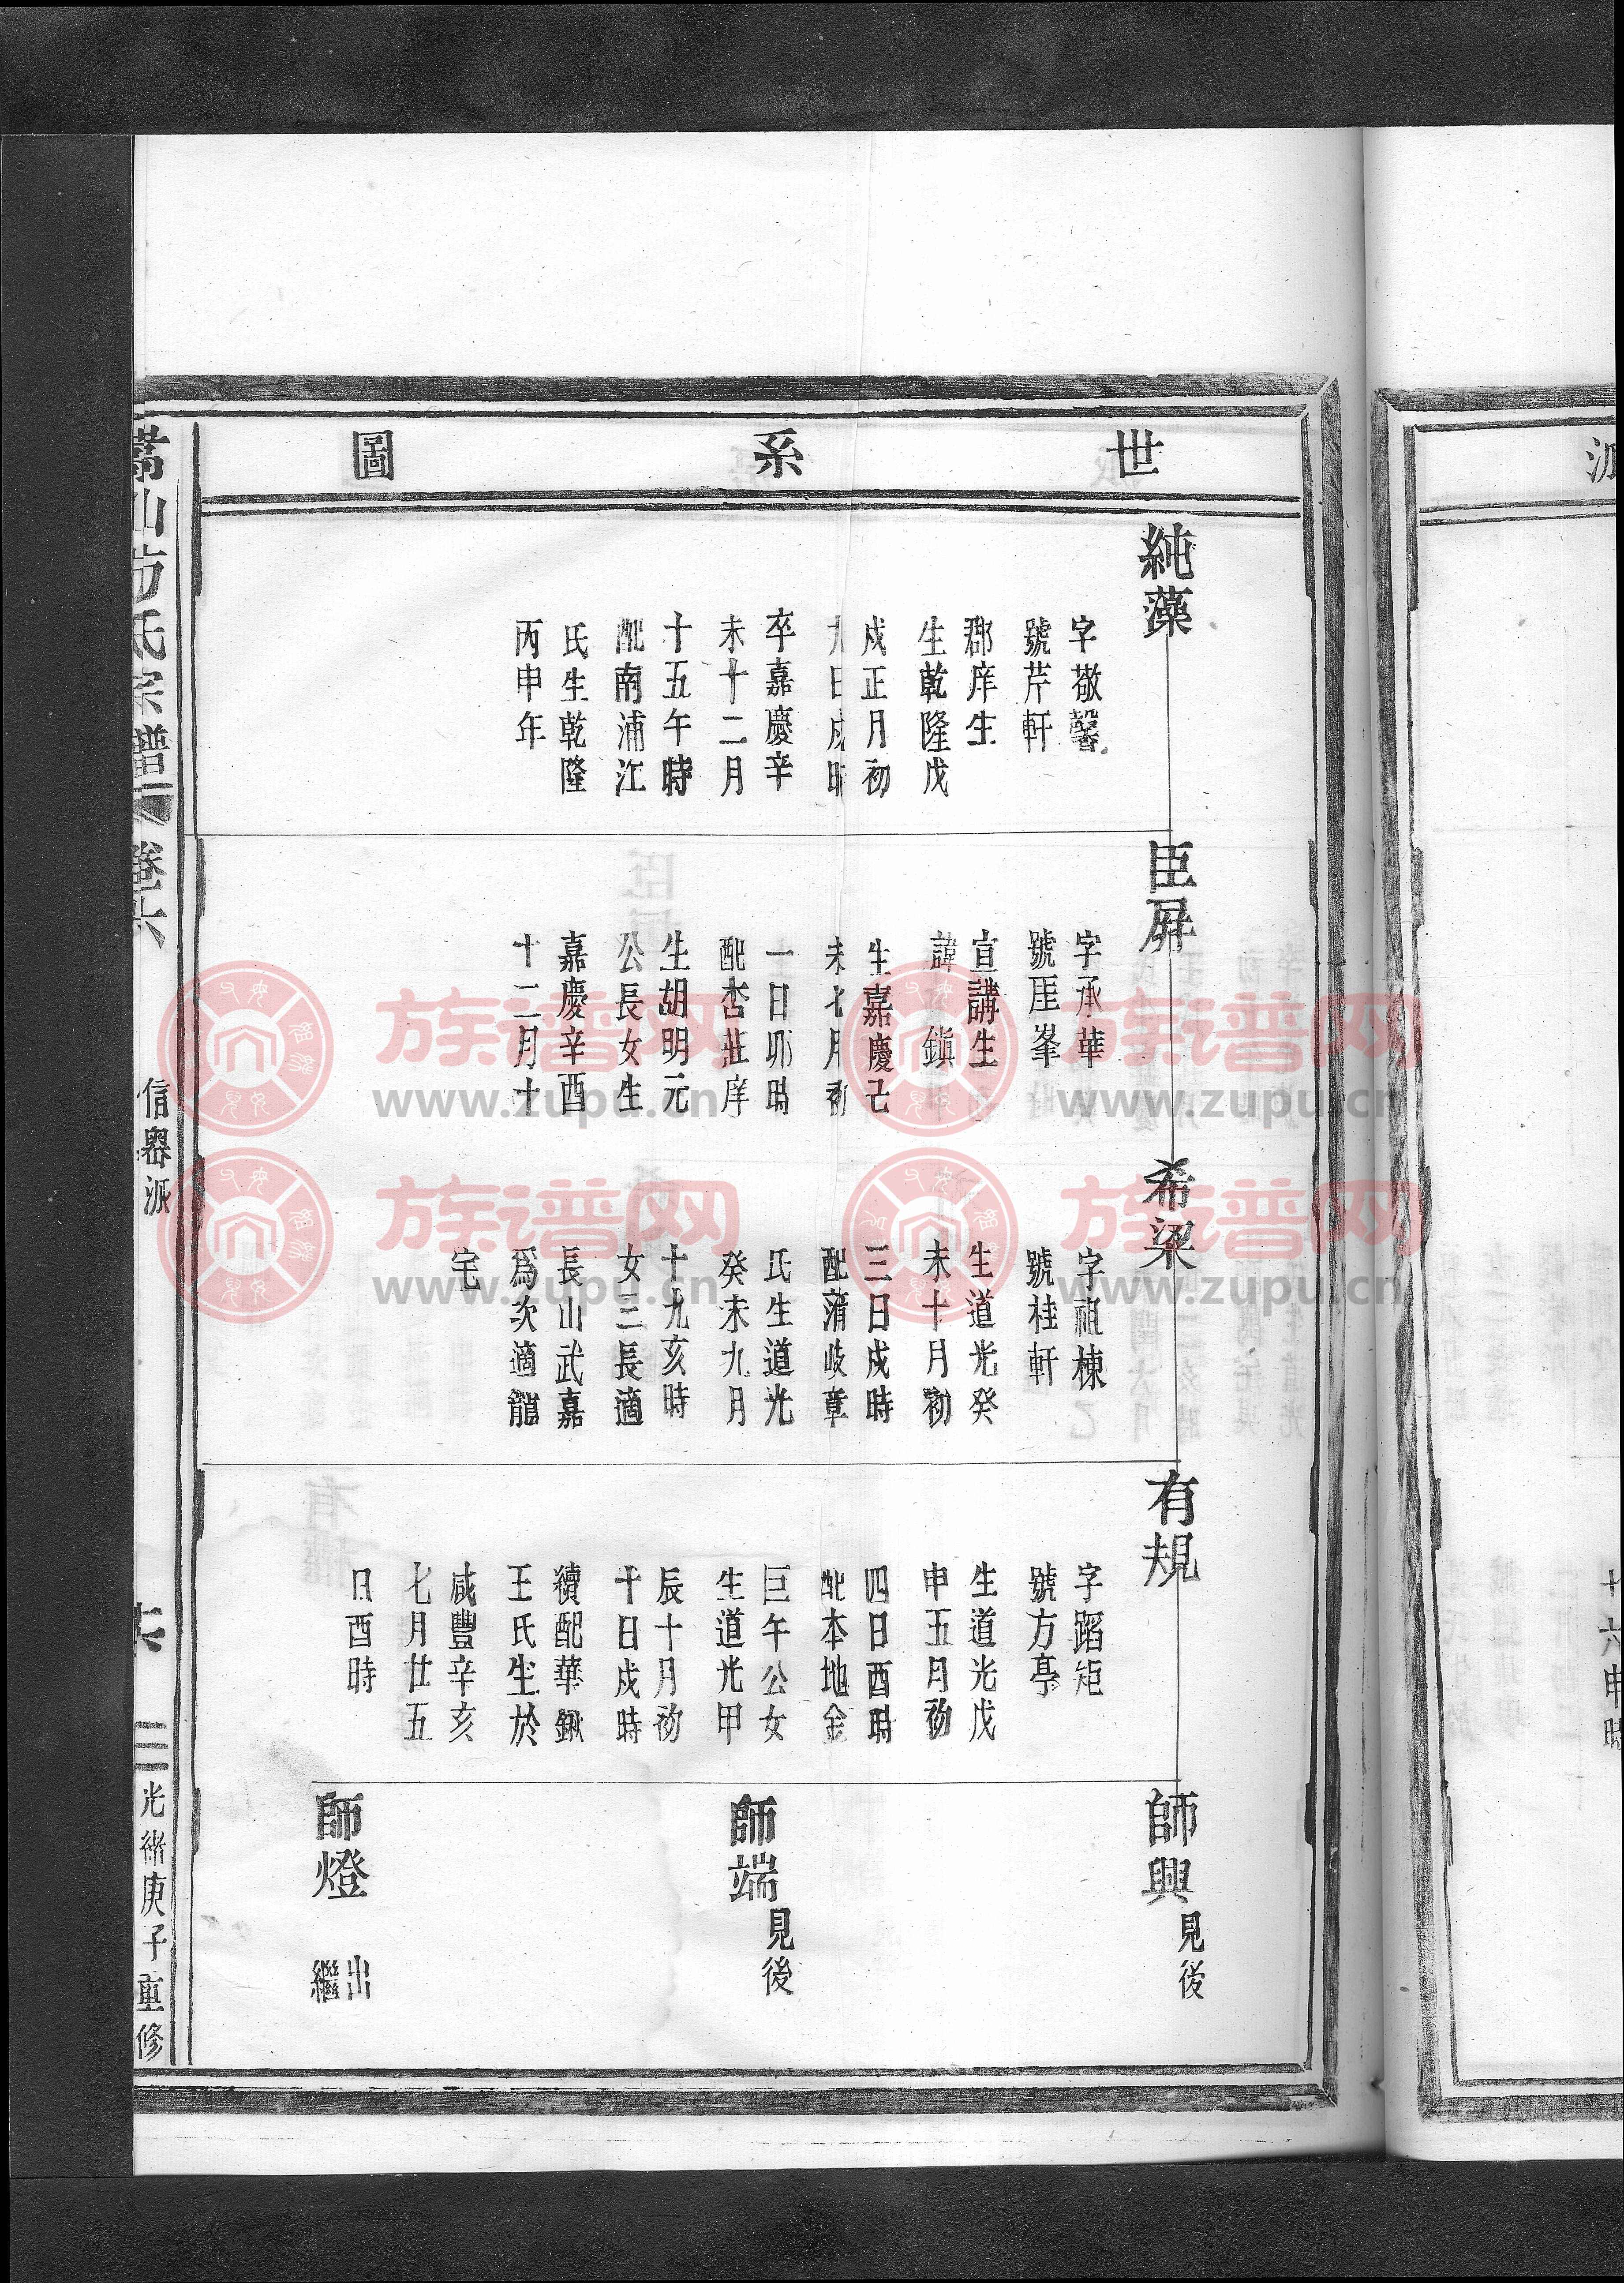 世系圖
純藻
字敬馨
號芹軒
郡庠生
生乾隆戊
戌正月初
九日戌時
卒嘉慶辛
未十二月
十五午時
配南浦江
氏生乾隆
丙申年
臣屏
字承華
號厓峯
宣講生
諱鎖
生嘉慶己
未七月初
一日卯時
配杏莊庠
生胡明元
公長女生
嘉慶辛酉
十二月十
希梁
字祖棟
號桂軒
生道光癸
未十月初
三日戌時
配蒲岐章
氏生道光
癸未九月
十九亥時
女三長適
長山武嘉
為次適龍
宅
有規
字蹈矩
號方亭
生道光戊
申五月初
四日酉時
配本地金
巨午公女
生道光甲
辰十月初
十日戌時
續配華鍬
王氏生於
咸豐辛亥
七月廿五
日酉時
師興
見後
師端
見後
師燈
出
繼
山方氏宗譜
卷六
信畧派
三
光緒庚子重修
十六申時
族谱网
www.zupu.cn
族谱网
www.zupu.cn
族谱网
www.zupu.cn
族谱网
www.zupu.cn